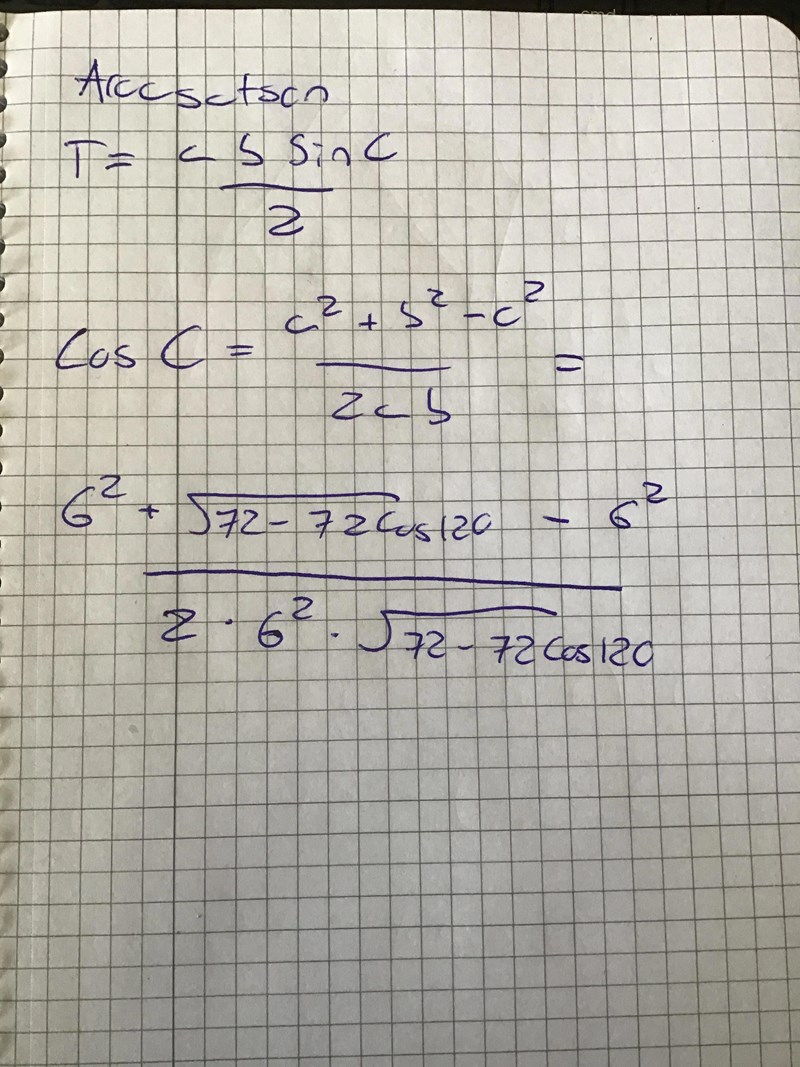 Areasatsen
T = a b sin C
2
Cos C = a² + b² - c² =
2 a b
6² + √72 - 72 cos 120 - 6²
2 · 6² · √72 - 72 cos 120